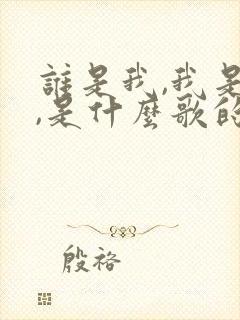 誰是我,我是
,是什麼歌的
殷袼